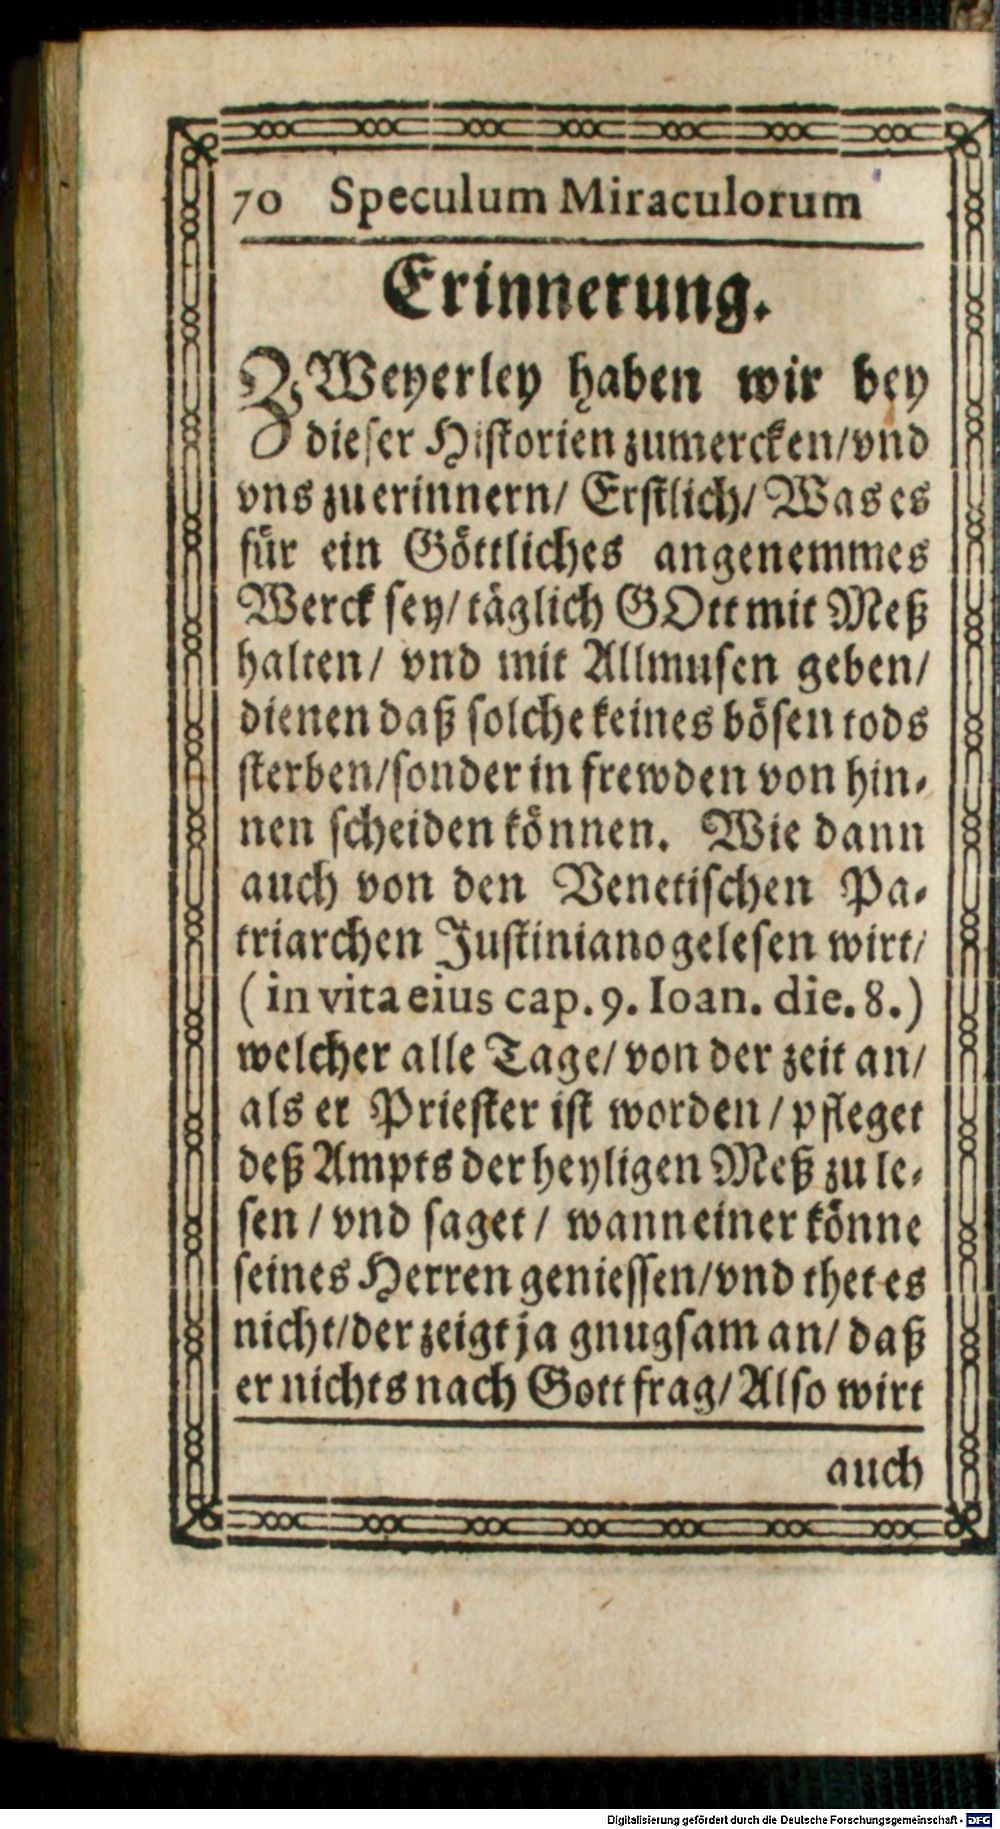 70 Speculum Miraculorum
Erinnerung.
ZWeyerley haben wir bey
dieser Historien zumercken/vnd
vns zu erinnern/ Erstlich/ Was es
für ein Göttliches angenemmes
Werck sey/ täglich GOtt mit Meß
halten/ vnd mit Allmusen geben/
dienen daß solche keines bösen tods
sterben/sonder in frewden von hin-
nen scheiden können. Wie dann
auch von den Venetischen Pa-
triarchen Justiniano gelesen wirt/
(in vita eius cap. 9. Ioan. die. 8.)
welcher alle Tage/ von der zeit an/
als er Priester ist worden/ pfleget
deß Ampts der heyligen Meß zu le-
sen/ vnd saget/ wann einer könne
seines Herren geniessen/vnd thet es
nicht/der zeigt ja gnugsam an/ daß
er nichts nach Gott frag/ Also wirt
auch
Digitalisierung gefördert durch die Deutsche Forschungsgemeinschaft - DFG